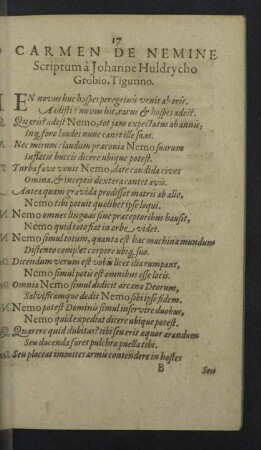 17
CARMEN DE NEMINE
Scriptum à Johanne Huldrycho
Grobio, Tigurino.
EN novus huc hospes peregrinis venit ab oris.
Audisti? novus hic, rarus & hospes adest.
Quæris? adest Nemo, tot jam expectatus ab annis,
Inq, foro laudes nunc canet ille suas.
Nec mirum: laudum præconia Nemo suarum
Inflatis buccis dicere ubique potest.
Turba fave venit Nemo, date candida cives
Omina, & inceptis dextera cantet avis.
Antea quam gravida prodisset matris ab alvo,
Nemo tibi potuit qualibet ipse loqui.
Nemo omnes linguas sine præceptoribus hausit,
Nemo quid toto fiat in orbe videt.
Nemo simul totum, quanta est hac machina mundum
Distento complet corpore ubiq, suo.
Dicendum verum est vobis licet ilia rumpant,
Nemo simul potis est omnibus esse locis.
Omnia Nemo simul didicit arcana Deorum,
Salvificamque dedit Nemo sibi ipse fidem.
Nemo potest Dominis simul inservire duobus,
Nemo quid expediat dicere ubique potest.
Quærere quid dubitas? tibi seu erit æquor arandum
Seu ducenda foret pulchra puella tibi.
Seu placeat immites armis contendere in hostes
B
Seu